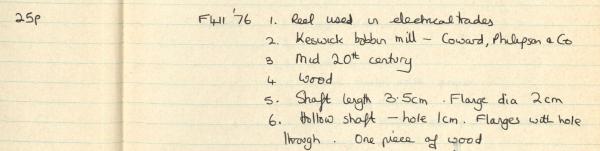 25p F411 '76 1. Reel used in electrical trades
2. Keswick bobbin mill - Coward, Philipson & Co
3 Mid 20th century
4 Wood
5. Shaft length 3.5cm. Flange dia 2cm
6. Hollow shaft - hole 1cm. Flanges with hole
through. One piece of wood